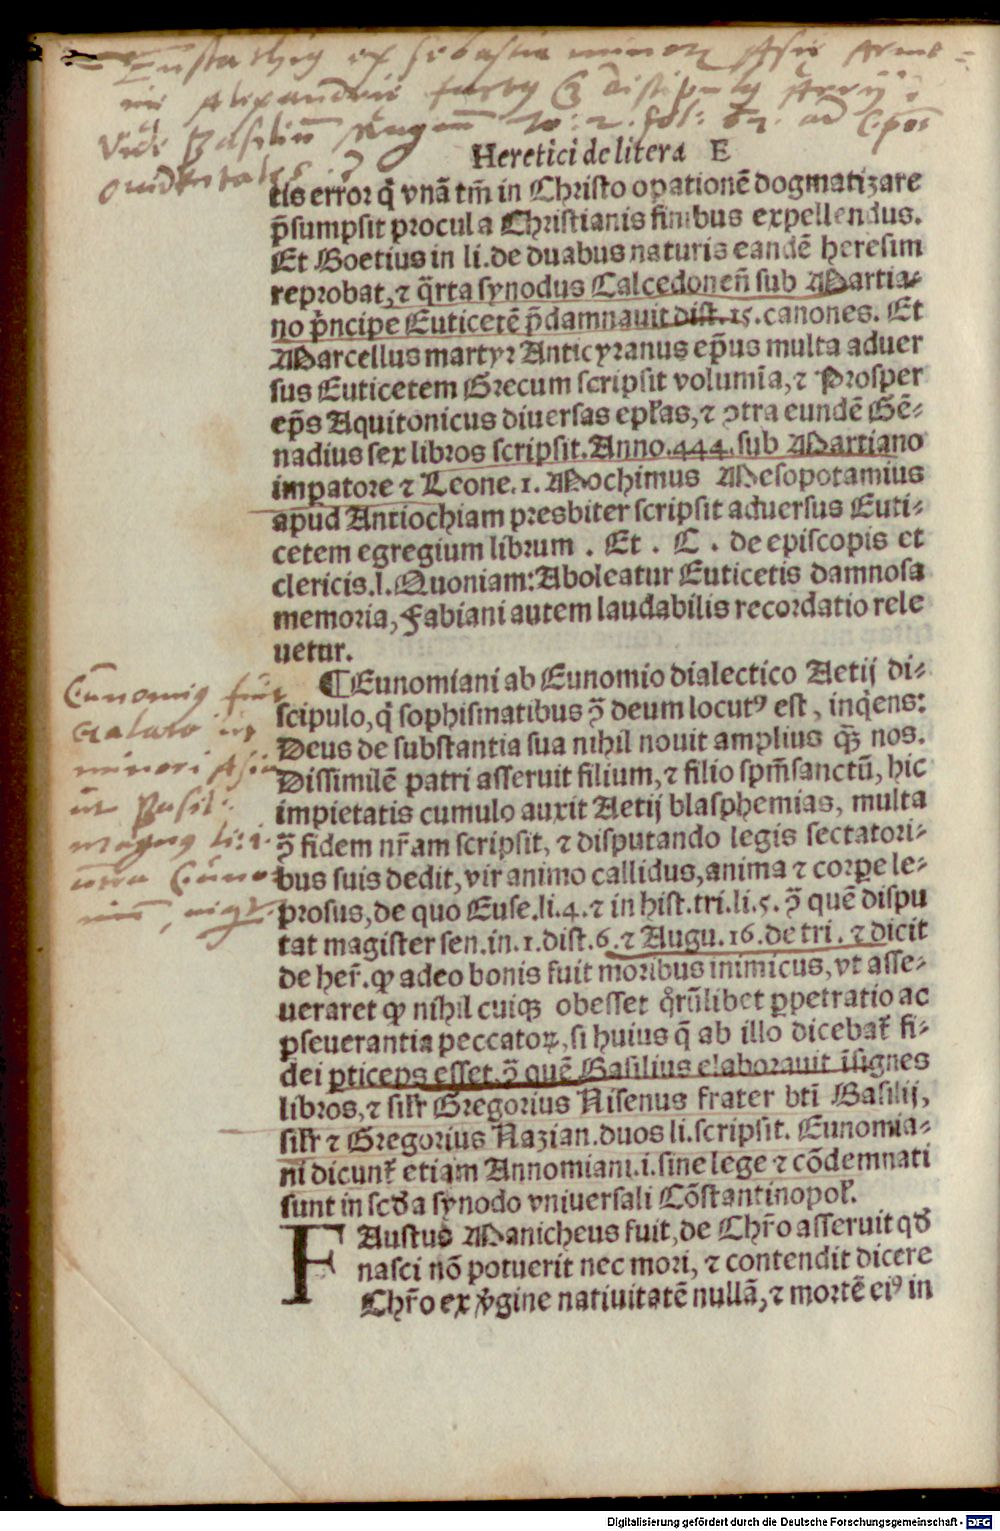 Eustathius ex sebastia minori Asię Arme=
nie Alexandrie Arrij
Vide Basiliū Magnū to: 2. fol: ad Ep̄os
Heretici de litera E
tis error q̄ vnā tm̄ in Christo opationē dogmatizare
p̄sumpsit procul a Christianis finibus expellendus.
Et Boetius in li. de duabus naturis eandē heresim
reprobat, ⁊ q̄rta synodus Calcedonen̄ sub Martia-
no p̄ncipe Euticetē p̄damnauit dist. 15. canones. Et
Marcellus martyr Anticyranus ep̄us multa aduer
sus Euticetem Grecum scripsit volumīa, ⁊ Prosper
ep̄s Aquitonicus diuersas ep̄las, ⁊ ↄtra eundē Gē-
nadius sex libros scripsit. Anno. 444. sub Martiano
imp̱atore ⁊ Leone. 1. Mochimus Mesopotamius
apud Antiochiam presbiter scripsit aduersus Euti-
cetem egregium librum . Et . C . de episcopis et
clericis. l. Quoniam: Aboleatur Euticetis damnosa
memoria, Fabiani autem laudabilis recordatio rele
uetur.
¶Eunomiani ab Eunomio dialectico Aetij di-
scipulo, q̄ sophismatibus ↄ̄ deum locutꝰ est, inq̄ens:
Deus de substantia sua nihil nouit amplius q̄ꝫ nos.
Dissimilē patri asseruit filium, ⁊ filio spm̄sanctū, hic
impietatis cumulo auxit Aetij blasphemias, multa
ↄ̄ fidem nr̄am scripsit, ⁊ disputando legis sectatori-
bus suis dedit, vir animo callidus, anima ⁊ corꝑe le-
prosus, de quo Euse. li. 4. ⁊ in hist. tri. li. 5. ↄ̄ quē dispu
tat magister sen. in. 1. dist. 6. ⁊ Augu. 16. de tri. ⁊ dicit
de her̄. ꝙ adeo bonis fuit moribus inimicus, vt asse-
ueraret ꝙ nihil cuiqꝫ obesset q̊rūlibet ꝑpetratio ac
ꝑseuerantia peccatoꝝ, si huius q̄ ab illo dicebat̄ fi-
dei ꝑticeps esset. ↄ̄ quē Basilius elaborauit īsignes
libros, ⁊ sil̄r Gregorius Nisenus frater bt̄i Basilij,
sil̄r ⁊ Gregorius Nazian. duos li. scripsit. Eunomia-
ni dicunt̄ etiam Annomiani. i. sine lege ⁊ cōdemnati
sunt in scd̄a synodo vniuersali Cōstantinopol̄.
FAustus Manicheus fuit, de Chr̄o asseruit qd̄
nasci nō potuerit nec mori, ⁊ contendit dicere
Chr̄o ex v̓gine natiuitatē nullā, ⁊ mortē eiꝰ in
Eunomiꝰ fuit
Galata in
minori Asia
ut Basil:
Magnus li: 1.
contra Euno-
miū
Digitalisierung gefördert durch die Deutsche Forschungsgemeinschaft - DFG